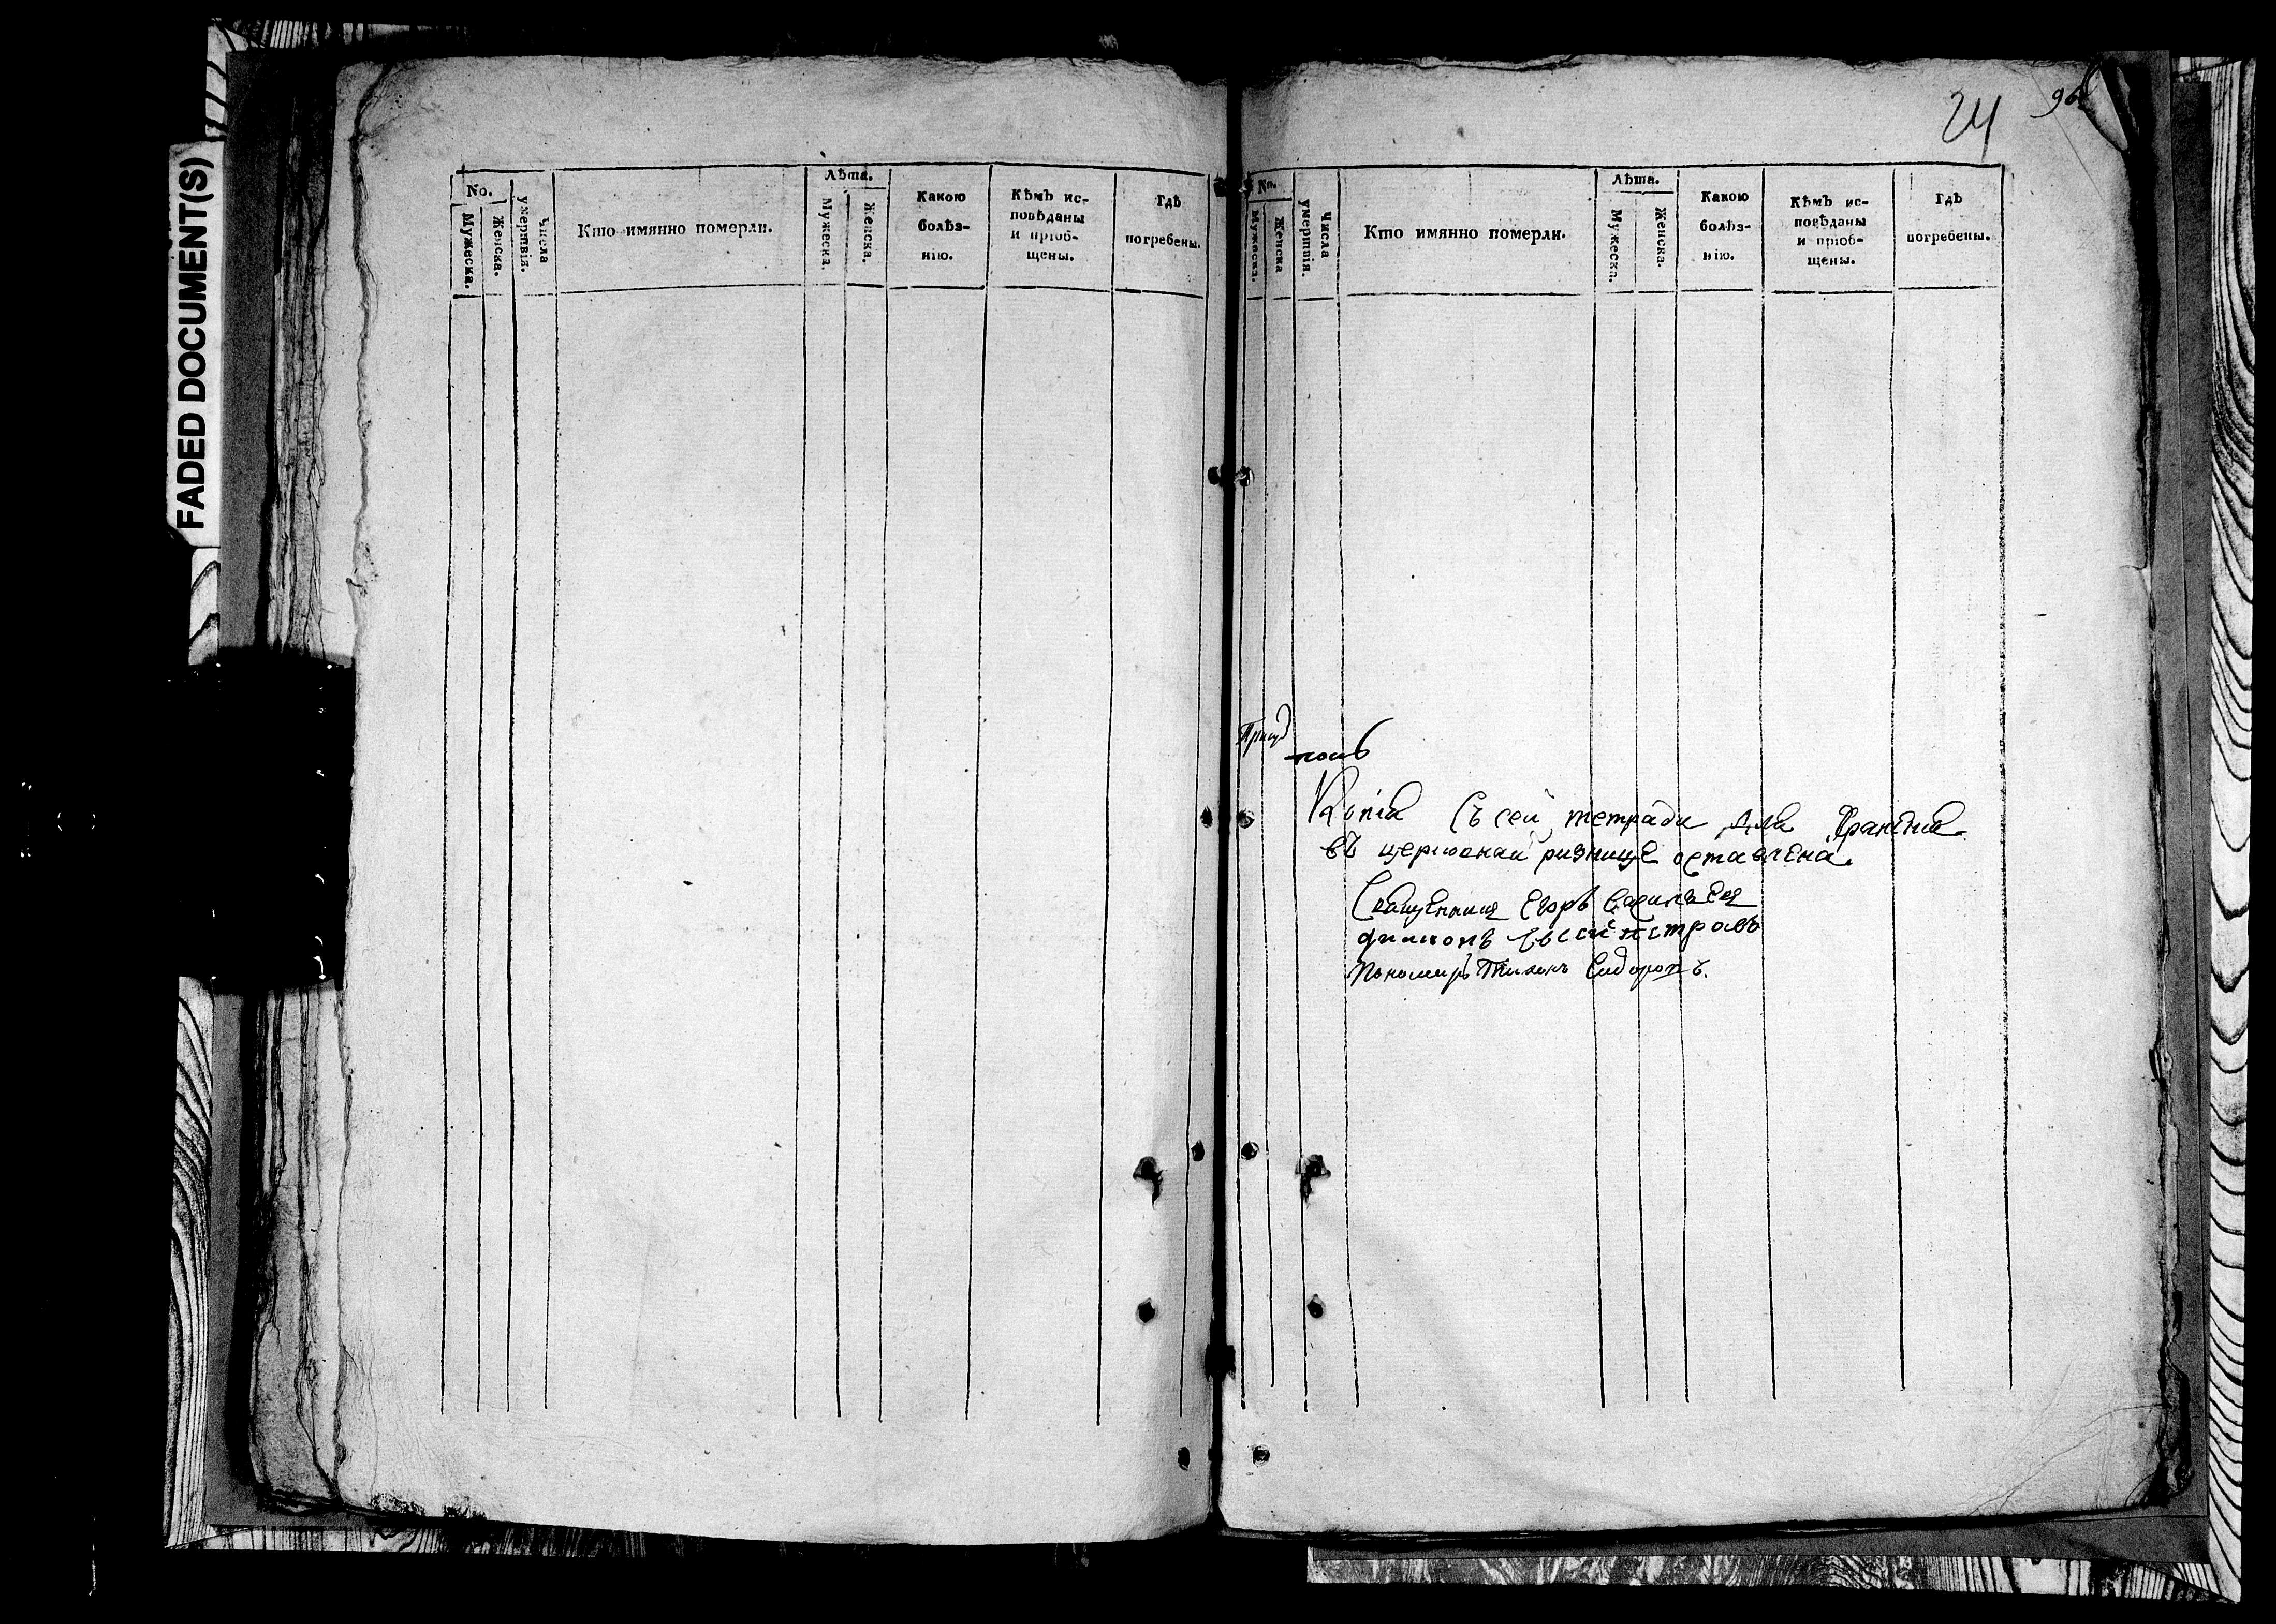 FADED DOCUMENT(S)
No.
Мужеска.
Женска.
Числа умертвія.
Кто имянно померли.
Лѣта.
Мужеска.
Женска.
Какою
болѣз-
нію.
Кѣмъ ис-
повѣданы
и пріоб-
щены.
Гдѣ
погребены.
24
96
No.
Мужеска.
Женска
Числа умертвія.
Кто имянно померли.
Лѣта.
Мужеска.
Женска.
Какою
болѣз-
нію.
Кѣмъ ис-
повѣданы
и пріоб-
щены.
Гдѣ
погребены.
Копіа съ сей тетради для хранения
въ церковнай ризнице оставлена
Священникъ Егоръ Васильев
диаконъ петровъ
Пономаръ Тихонъ Сидоровъ.